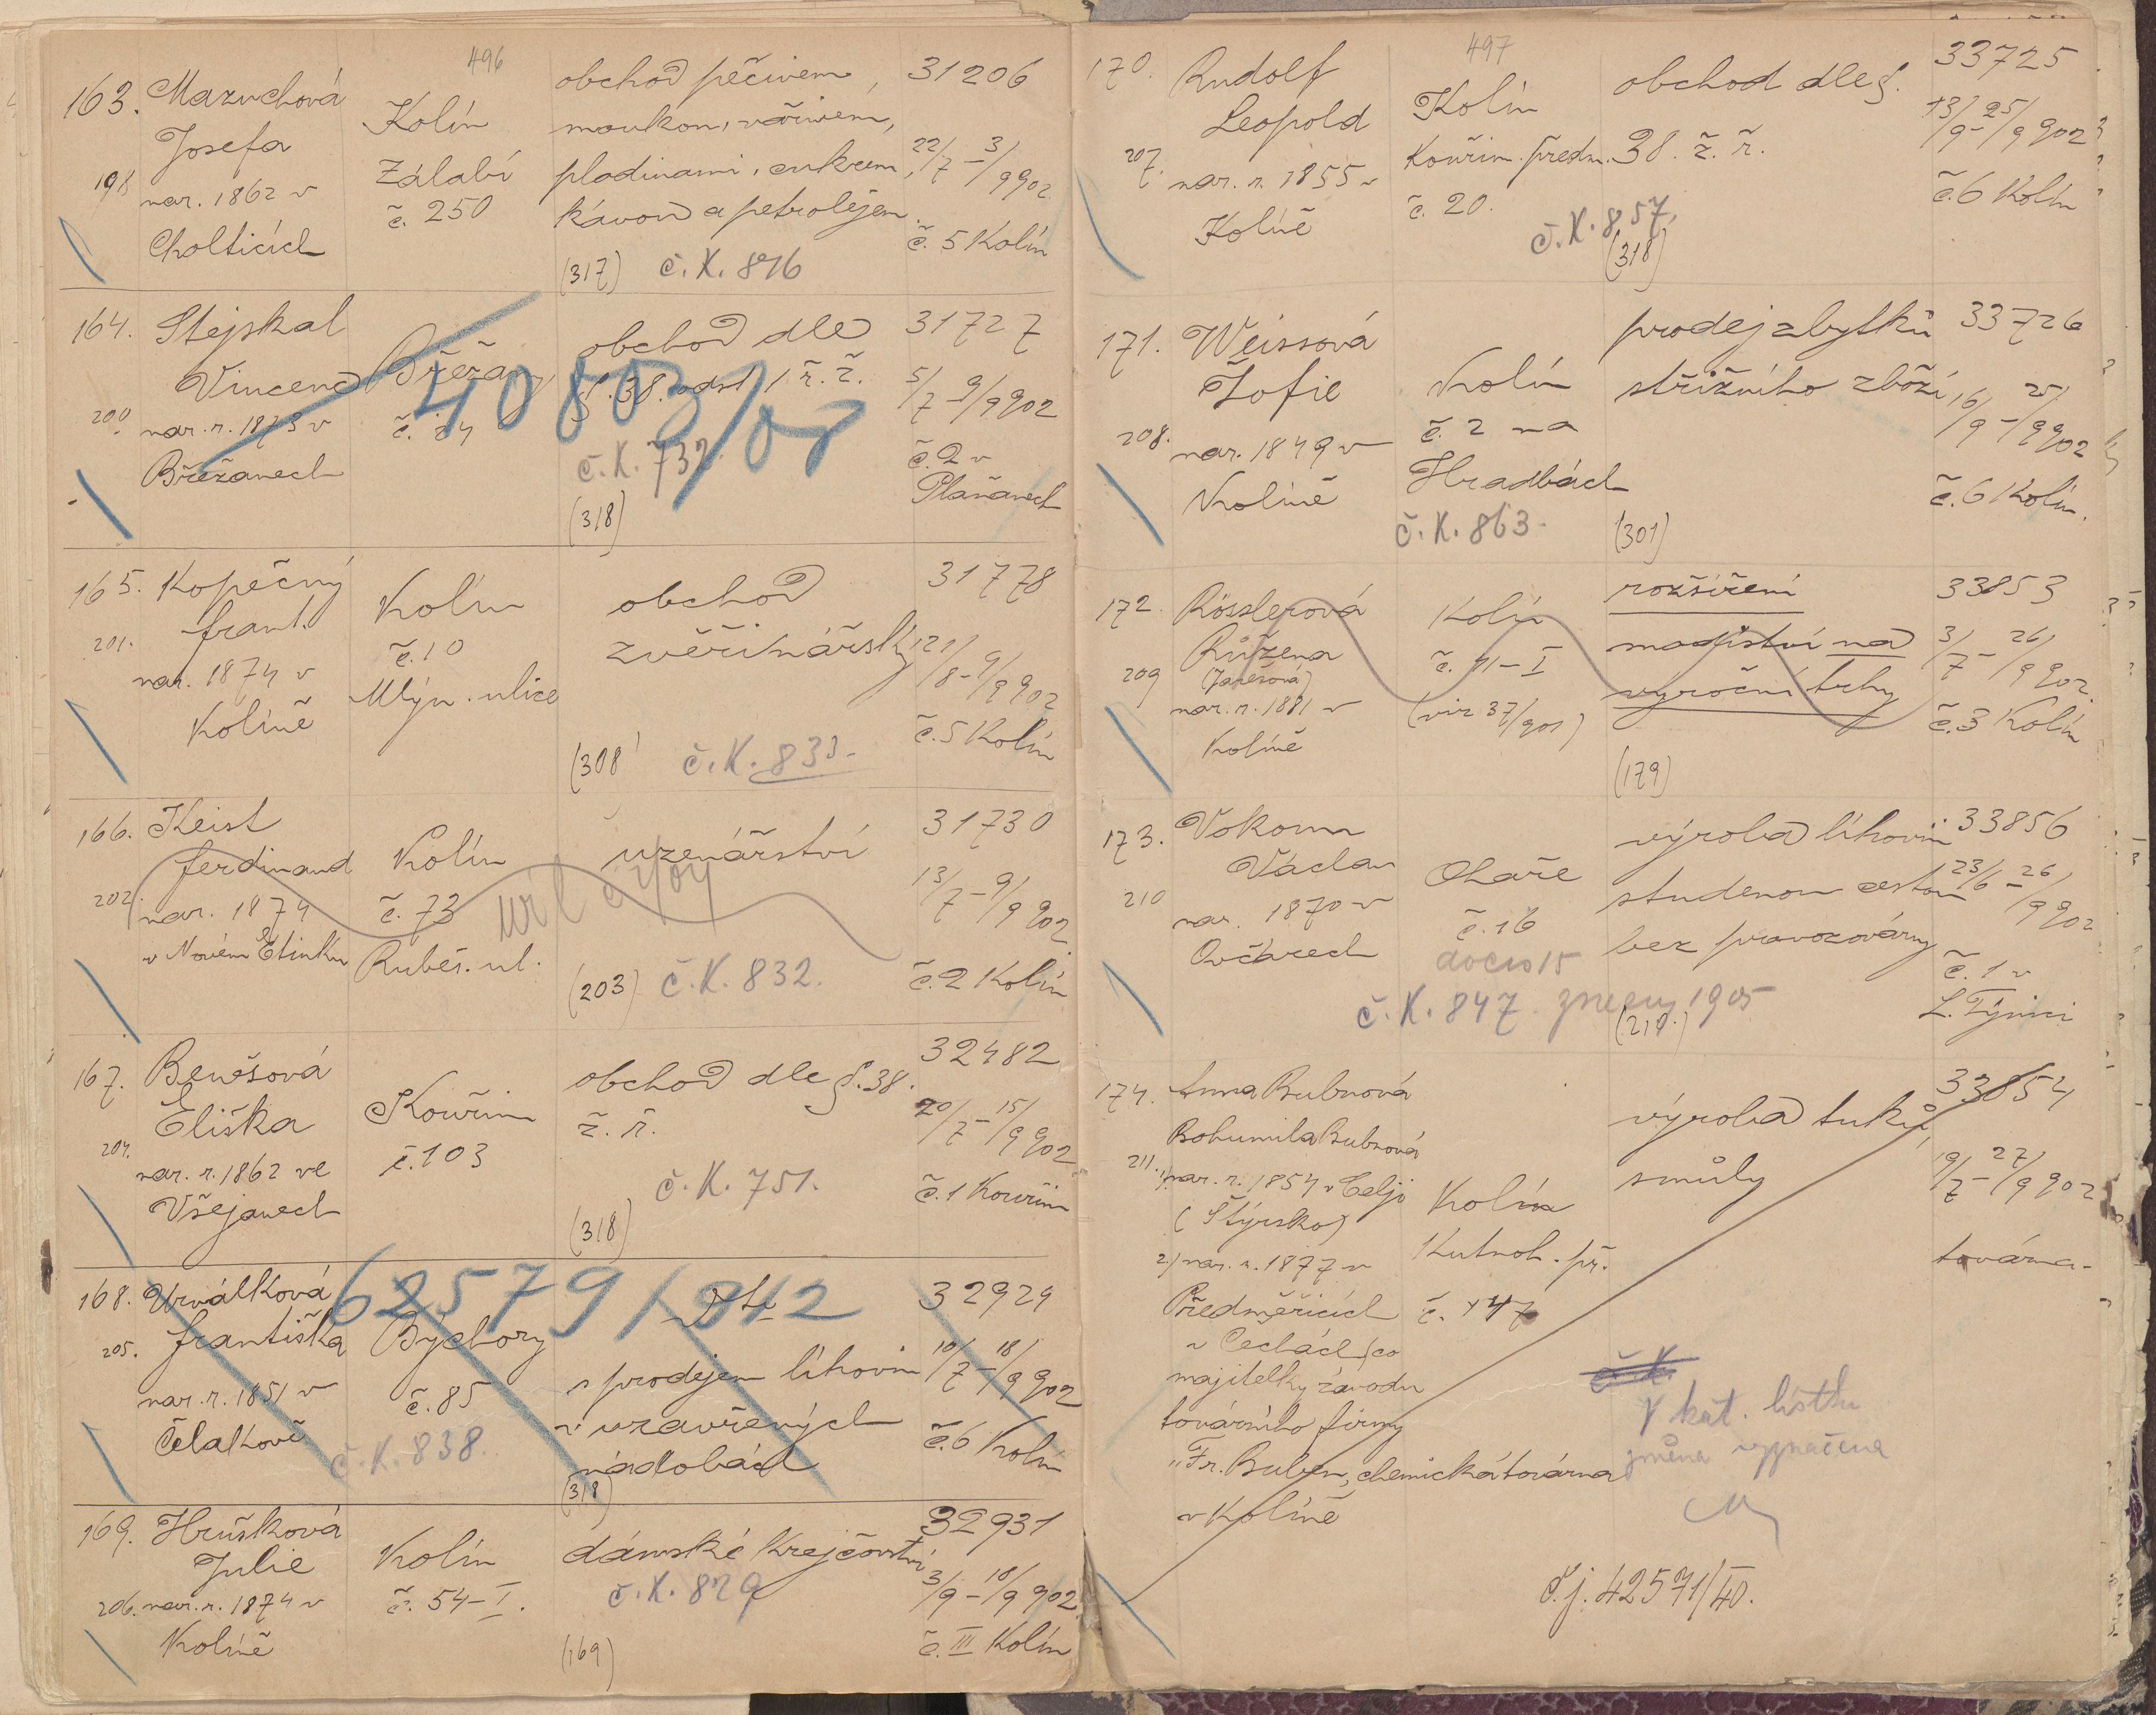 496
163. Mazuchová
Josefa
198 nar. 1862 v
Cholticích
Kolín
Zálabí
č. 250
obchod pečivem,
moukou, vařivem,
plodinami, cukrem,
kávou a petrolejem.
(317) č. K. 816
31206
22/7 – 3/9 902
č. 5 Kolín
164. Stejskal
Vincenc
200. nar. r. 1873 v
Břežanech
Břežany
č.
obchod dle
§. 38. odst 1 ř. ž.
40803/08
č. K. 732.
(318)
31727
5/7 – 9/9 902
č. 2 v
Plaňanech
165. Kopečný
Frant.
201.
nar. 1874 v
Kolíně
Kolín
č. 10
Mlýn. ulice
obchod
zvěřinářský
(308) č. K. 833.
31778
21/8 – 9/9 902
č. 5 Kolín
166. Keist
Ferdinand
202. nar. 1874
v Novém Etinku
Kolín
č. 73
Rubeš. ul.
uzenářství
(203) č. K. 832.
31730
13/7 – 9/9 902
č. 2 Kolín
167. Benešová
Eliška
204. nar. r. 1862 ve
Všejanech
Kouřim
č. 103
obchod dle §. 38.
ž. ř.
č. K. 751.
(318)
32482
20/7 – 15/9 902
č. 1 Kouřim
168. Urválková
Františka
205.
nar. r. 1851 v
Čelakově
Býchory
č. 85
č. K. 838.
62579/912
s prodejem líhovin
v uzavřených
nádobách
(318)
32929
10/7 – 18/9 902
č. 6 Kolín
169. Hrušková
Julie
206. nar. r. 1874 v
Kolíně
Kolín
č. 54–I.
dámské krejčovství
č. K. 829
(169)
32931
3/9 – 18/9 902
č. III Kolín
497
170. Rudolf
Leopold
207. nar. r. 1855 v
Kolíně
Kolín
Kouřim. předm.
č. 20.
obchod dle §.
38. ž. ř.
č. K. 857,
(318)
33725
13/9 – 25/9 902
č. 6 Kolín
171. Weissová
Žofie
208. nar. 1849 v
Kolíně
Kolín
č. 2 na
Hradbách
č. K. 863.
prodej zbytků
střižního zboží
(301)
33726
16/9 – 25/9 902
č. 6 Kolín.
172. Rösslerová
Růžena
209 (Jarešová)
nar. r. 1881 v
Kolíně
Kolín
č. 11–I
(viz 37/901)
rozšíření
modiství na
výroční trhy
(179)
33853
3/7 – 26/9 902.
č. 3 Kolín
173. Vokoun
Václav
210 nar. 1870 v
Ovčárech
Ohaře
č. 16
č. K. 847. 1905
výroba líhovin
studenou cestou
bez provozovárny
33856
23/6 – 26/9 902
č. 1 v
L. Týnici
174. Anna Bubnová
Bohumila Bubnová
211. 1) nar. r. 1854 v Celji
(Štýrsko)
2) nar. r. 1877 v
Předměřicích
v Čechách co
majitelky závodu
továrního firmy
„Fr. Buben, chemická továrna
v Kolíně
Kolín
Kutnoh. př.
č. 147
výroba tuků,
smůly
č. K.
V kat. lístku
změna vyznačena
č. j. 42571/40.
33854
19/7 – 27/9 902
továrna.